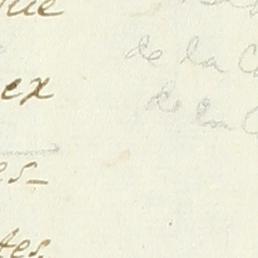 ue
de la C
ex
de la C
es-
tes.